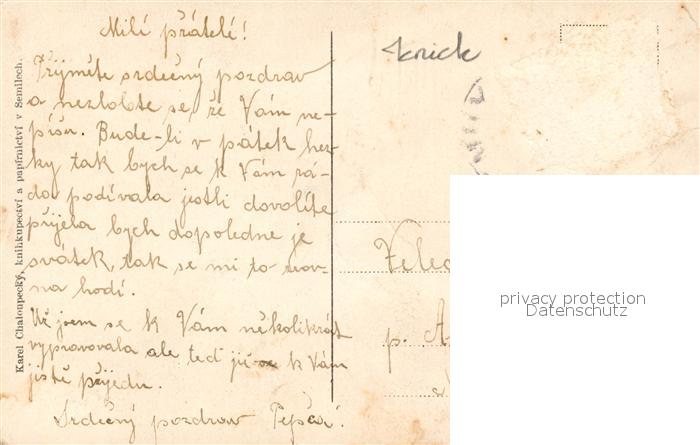 Milí přátelé!
Přijměte srdečný pozdrav
a nezlobte se, že Vám ne-
píšu. Bude-li v pátek hez-
ky tak bych se k Vám rá-
da podívala jestli dovolíte
přijela bych dopoledne je
svátek, tak se mi to rov-
na hodí.
Už jsem se k Vám několikrát
vypravovala ale teď již k Vám
jistě přijedu.
Srdečný pozdrav
Karel Chaloupecký, knihkupectví a papírnictví v Semilech.
knick
Velec
p. A
privacy protection
Datenschutz